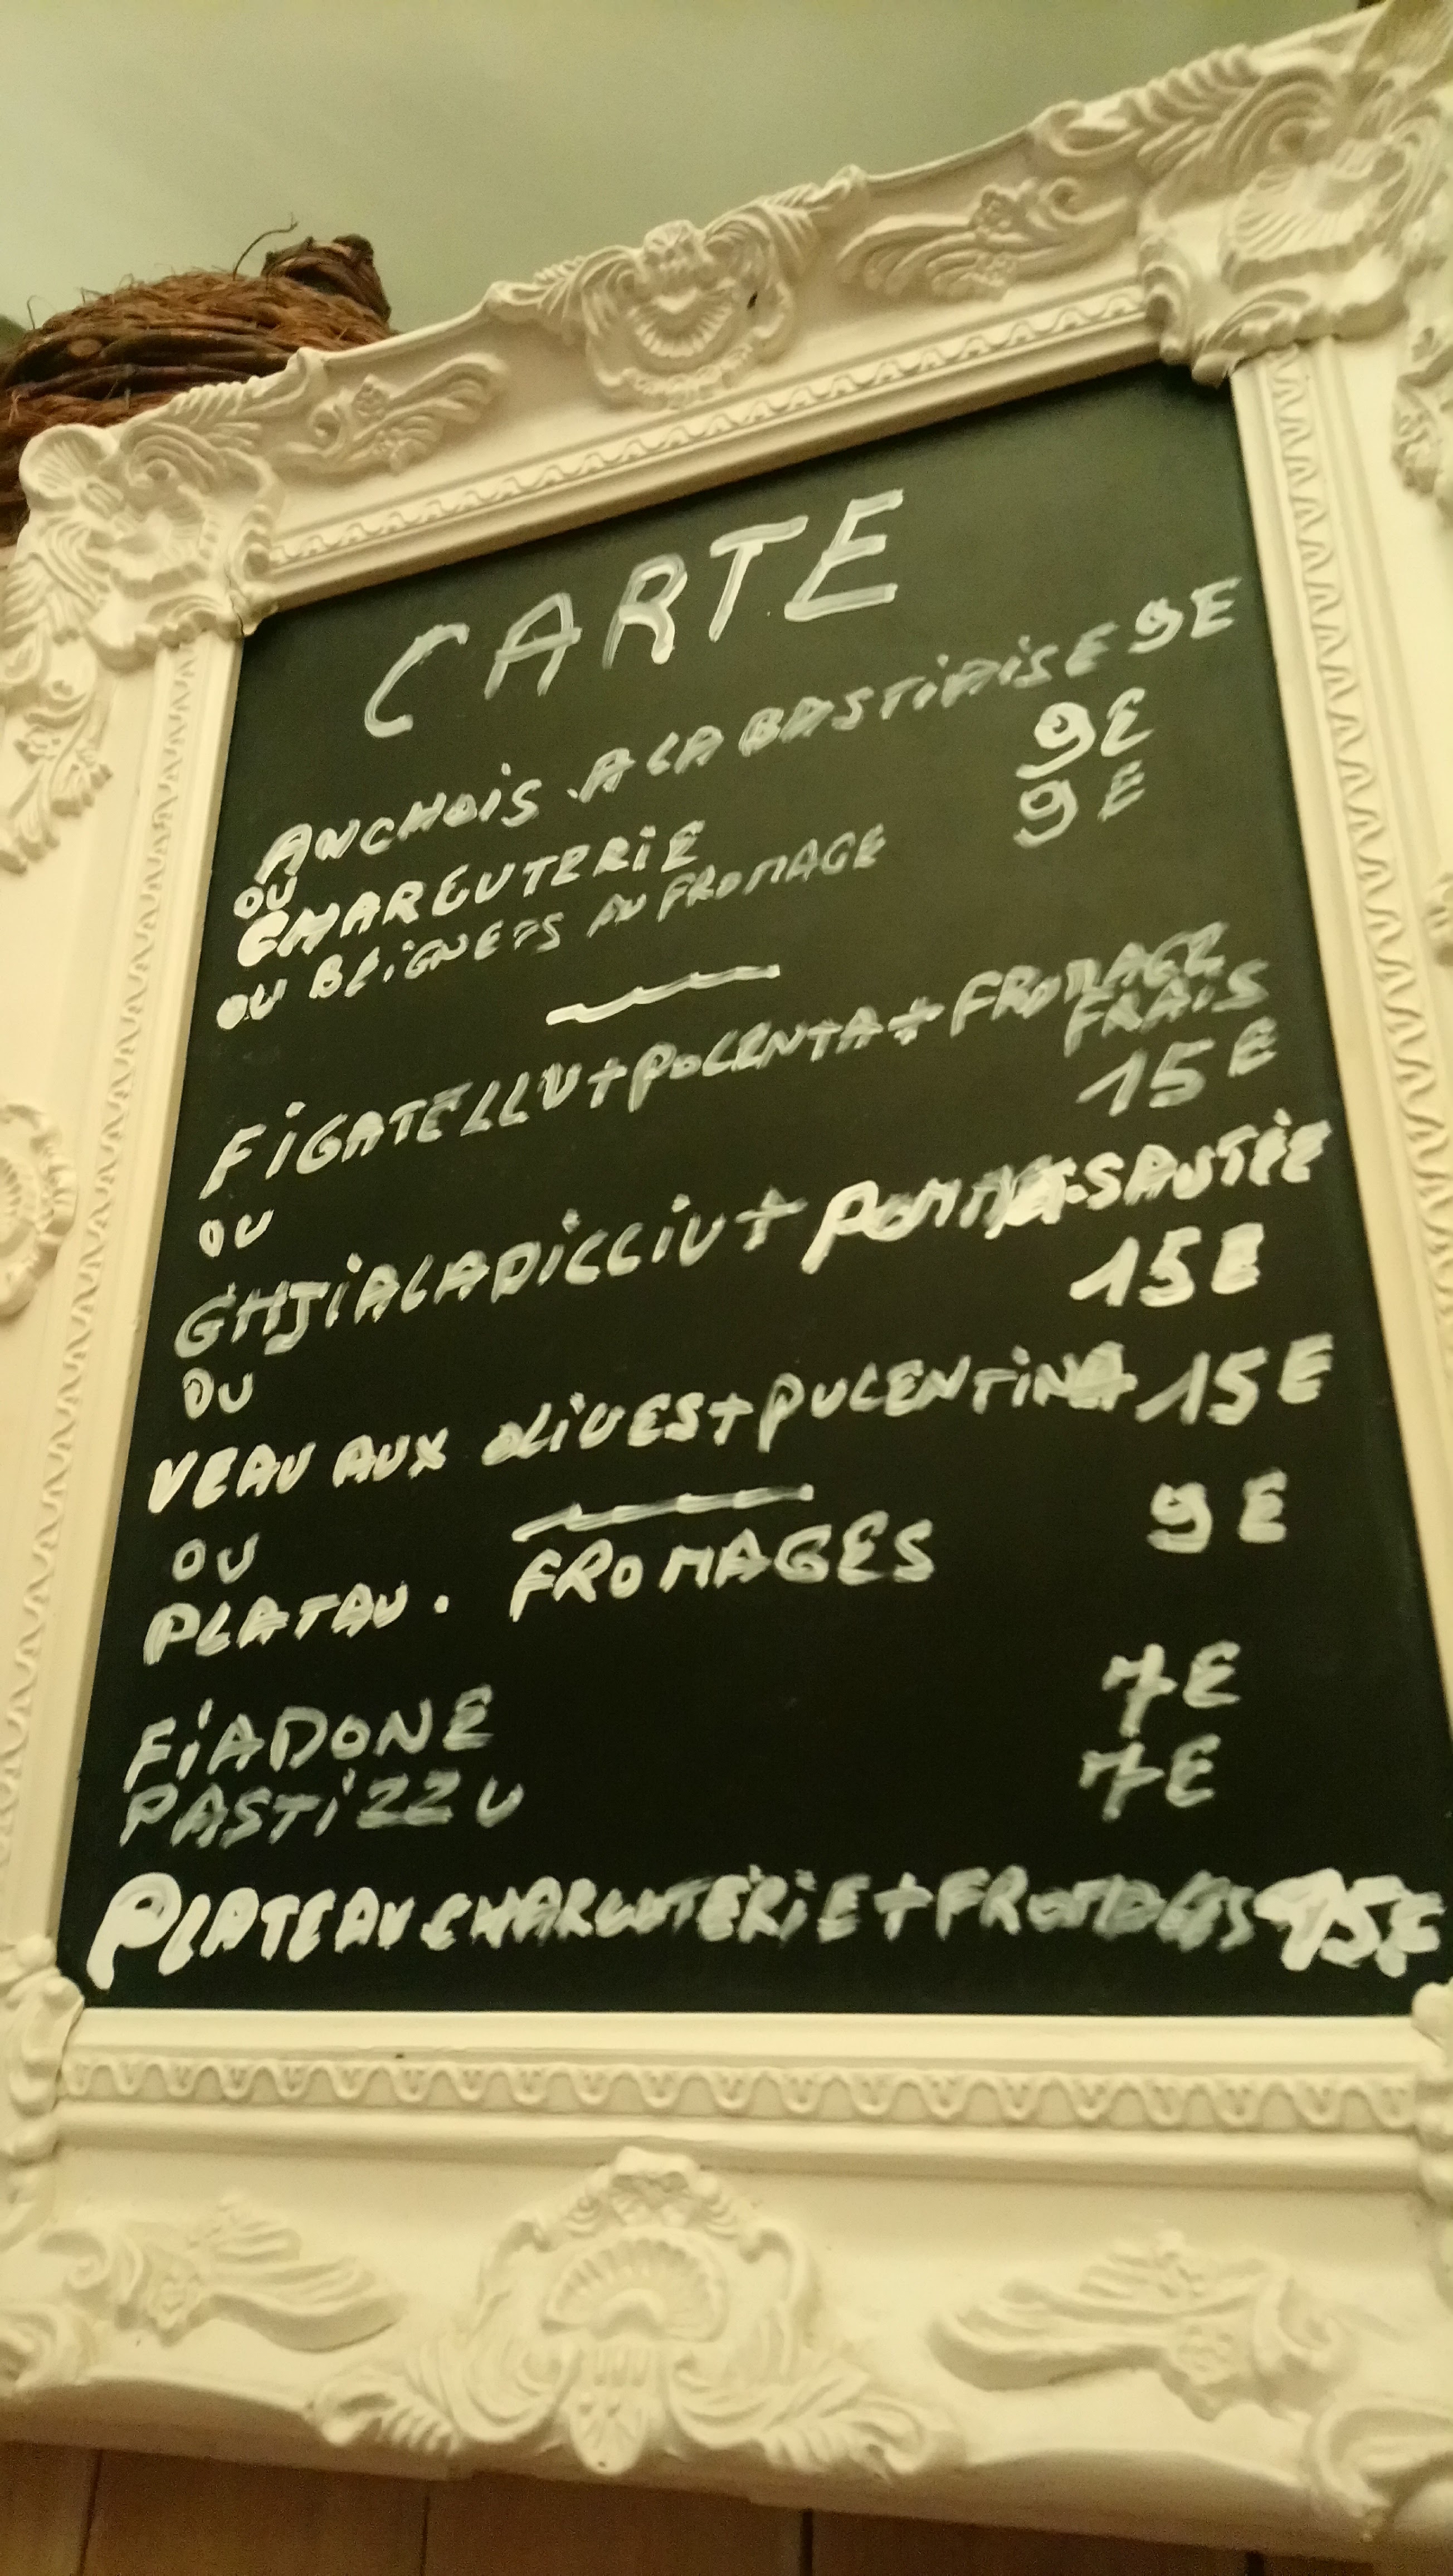 CARTE
ANCHOIS. A LA BASTIAISE 9E
OU
CHARCUTERIE 9E
OU BEIGNETS AU FROMAGE 9E
FIGATELLU + POLENTA + FROMAGE
FRAIS
15E
OU
GHJIALADICCIU + POMMES SAUTÉE
15E
OU
VEAU AUX OLIVES + PULENTINA 15E
OU
PLATAU. FROMAGES 9E
FIADONE 7E
PASTIZZU 7E
PLATEAU CHARCUTERIE + FROMAGES 15E